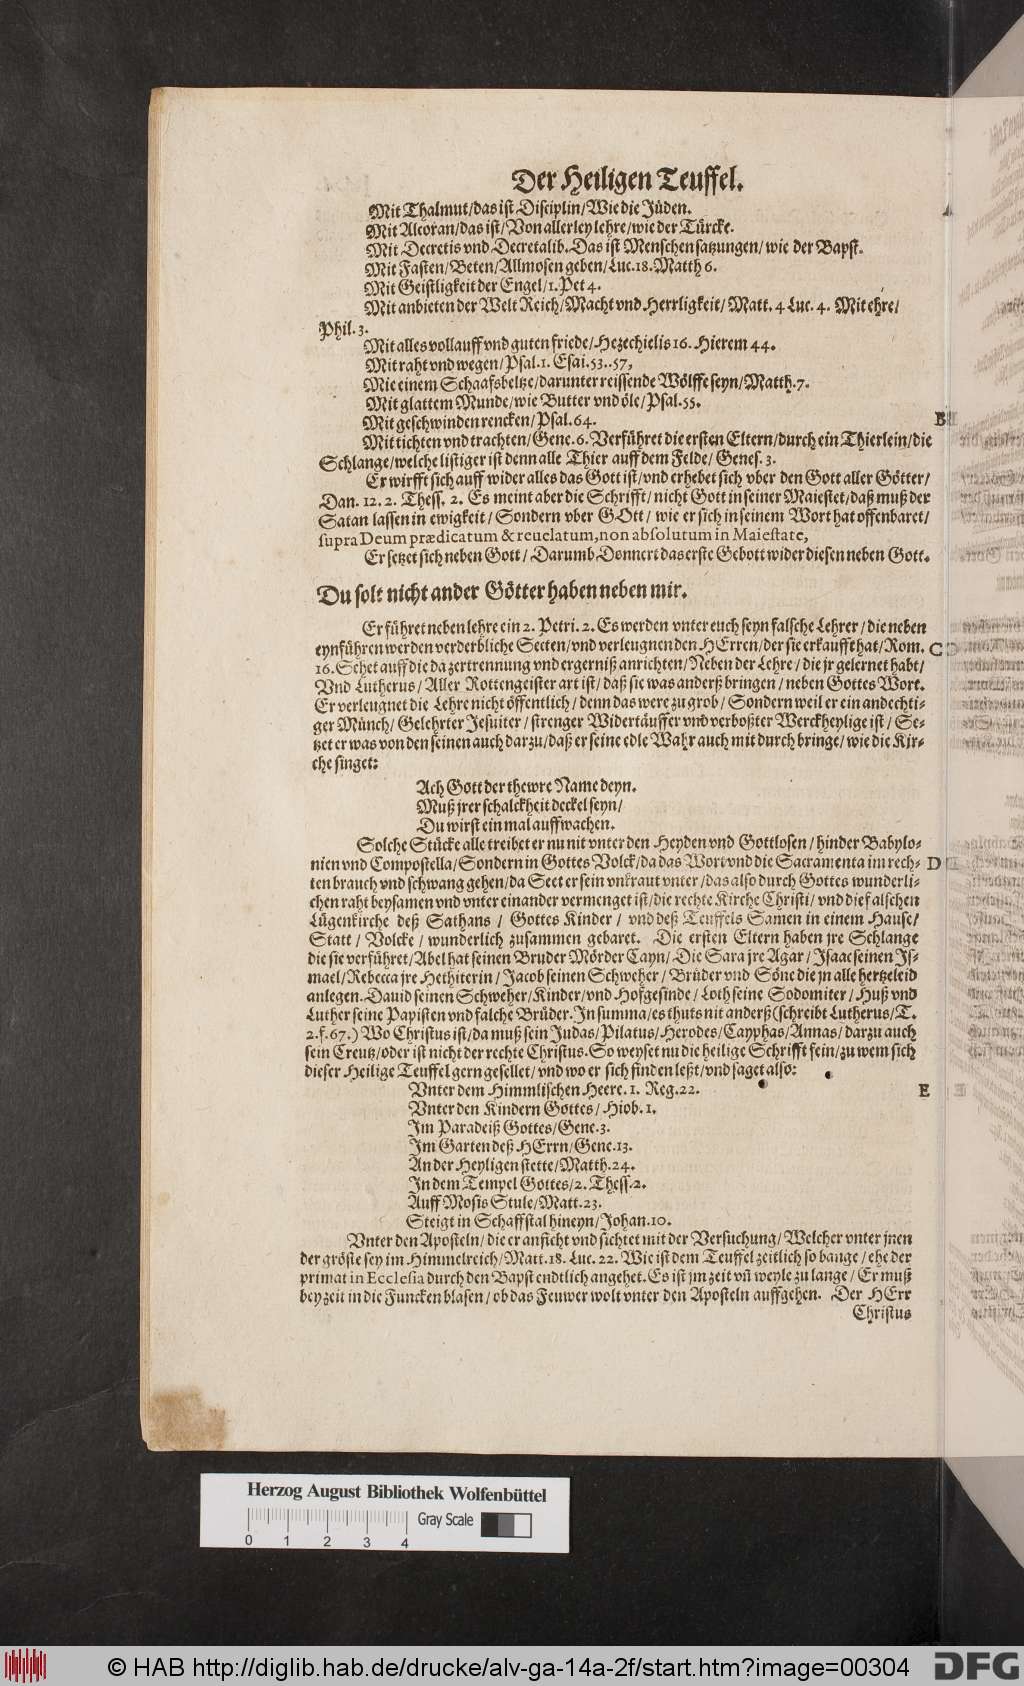 Der Heiligen Teuffel.
Mit Thalmut/das ist Disciplin/Wie die Jüden.
Mit Alcoran/das ist/Von allerley lehre/wie der Türcke.
Mit Decretis vnd Decretalib. Das ist Menschensatzungen/wie der Bapst.
Mit Fasten/Beten/Allmosen geben/Luc.18.Matth 6.
Mit Geistligkeit der Engel/1.Pet 4.
Mit anbieten der Welt Reich/Macht vnd Herrligkeit/Matt. 4 Luc. 4. Mit ehre/
Phil. 3.
Mit alles vollauff vnd guten friede/Hezechielis 16. Hierem 44.
Mit raht vnd wegen/Psal.1. Esai.53..57,
Mie einem Schaafsbeltze/darunter reissende Wölffe seyn/Matth.7.
Mit glattem Munde/wie Butter vnd öle/Psal.55.
Mit geschwinden rencken/Psal.64.
B
Mit tichten vnd trachten/Gene.6.Verführet die ersten Eltern/durch ein Thierlein/die
Schlange/welche listiger ist denn alle Thier auff dem Felde/Genes. 3.
Er wirfft sich auff wider alles das Gott ist/vnd erhebet sich vber den Gott aller Götter/
Dan. 12. 2. Thess. 2. Es meint aber die Schrifft/nicht Gott in seiner Maiestet/daß muß der
Satan lassen in ewigkeit/Sondern vber GOtt/wie er sich in seinem Wort hat offenbaret/
supra Deum prædicatum & reuelatum, non absolutum in Maiestate,
Er setzet sich neben Gott/Darumb Donnert das erste Gebott wider diesen neben Gott.
Du solt nicht ander Götter haben neben mir.
Er führet neben lehre ein 2. Petri. 2. Es werden vnter euch seyn falsche Lehrer/die neben
eynführen werden verderbliche Secten/vnd verleugnen den HErren/der sie erkaufft hat/Rom. C
16. Sehet auff die da zertrennung vnd ergerniß anrichten/Neben der Lehre/die jr gelernet habt/
Vnd Lutherus/Aller Rottengeister art ist/daß sie was anderß bringen/neben Gottes Wort.
Er verleugnet die Lehre nicht öffentlich/denn das were zu grob/Sondern weil er ein andechti-
ger Münch/Gelehrter Jesuiter/strenger Widertäuffer vnd verboßter Werckheylige ist/Se-
tzet er was von den seinen auch darzu/daß er seine edle Wahr auch mit durch bringe/wie die Kir-
che singet:
Ach Gott der thewre Name deyn.
Muß jrer schalckheit deckel seyn/
Du wirst ein mal auffwachen.
Solche Stücke alle treibet er nu nit vnter den Heyden vnd Gottlosen/hinder Babylo-
nien vnd Compostella/Sondern in Gottes Volck/da das Wort vnd die Sacramenta im rech- D
ten brauch vnd schwang gehen/da Seet er sein vnkraut vnter/das also durch Gottes wunderli-
chen raht beysamen vnd vnter einander vermenget ist/die rechte Kirche Christi/vnd die falschen
Lügenkirche deß Sathans/Gottes Kinder/vnd deß Teuffels Samen in einem Hause/
Statt/Volcke/wunderlich zusammen gebaret. Die ersten Eltern haben jre Schlange
die sie verführet/Abel hat seinen Bruder Mörder Cayn/Die Sara jre Agar/Isaac seinen Is-
mael/Rebecca jre Hethiterin/Jacob seinen Schweher/Brüder vnd Söne die jn alle hertzeleid
anlegen. Dauid seinen Schweher/Kinder/vnd Hofgesinde/Loth seine Sodomiter/Huß vnd
Luther seine Papisten vnd falche Brüder. In summa/es thuts nit anderß (schreibt Lutherus/T.
2.f.67.) Wo Christus ist/da muß sein Judas/Pilatus/Herodes/Cayphas/Annas/darzu auch
sein Creutz/oder ist nicht der rechte Christus. So weyset nu die heilige Schrifft fein/zu wem sich
dieser Heilige Teuffel gern gesellet/vnd wo er sich finden leßt/vnd saget also:
Vnter dem Himmlischen Heere. 1. Reg.22. E
Vnter den Kindern Gottes/Hiob. 1.
Im Paradeiß Gottes/Gene.3.
Im Garten deß HErrn/Gene.13.
An der Heyligen stette/Matth.24.
In dem Tempel Gottes/2. Thess.2.
Auff Mosis Stule/Matt.23.
Steigt in Schaffstal hineyn/Johan.10.
Vnter den Aposteln/die er anficht vnd sichtet mit der Versuchung/Welcher vnter jnen
der gröste sey im Himmelreich/Matt.18. Luc. 22. Wie ist dem Teuffel zeitlich so bange/ehe der
primat in Ecclesia durch den Bapst endtlich angehet. Es ist jm zeit vñ weyle zu lange/Er muß
bey zeit in die Funcken blasen/ob das Feuwer wolt vnter den Aposteln auffgehen. Der HErr
Christus
Herzog August Bibliothek Wolfenbüttel
Gray Scale
0 1 2 3 4
© HAB http://diglib.hab.de/drucke/alv-ga-14a-2f/start.htm?image=00304
DFG